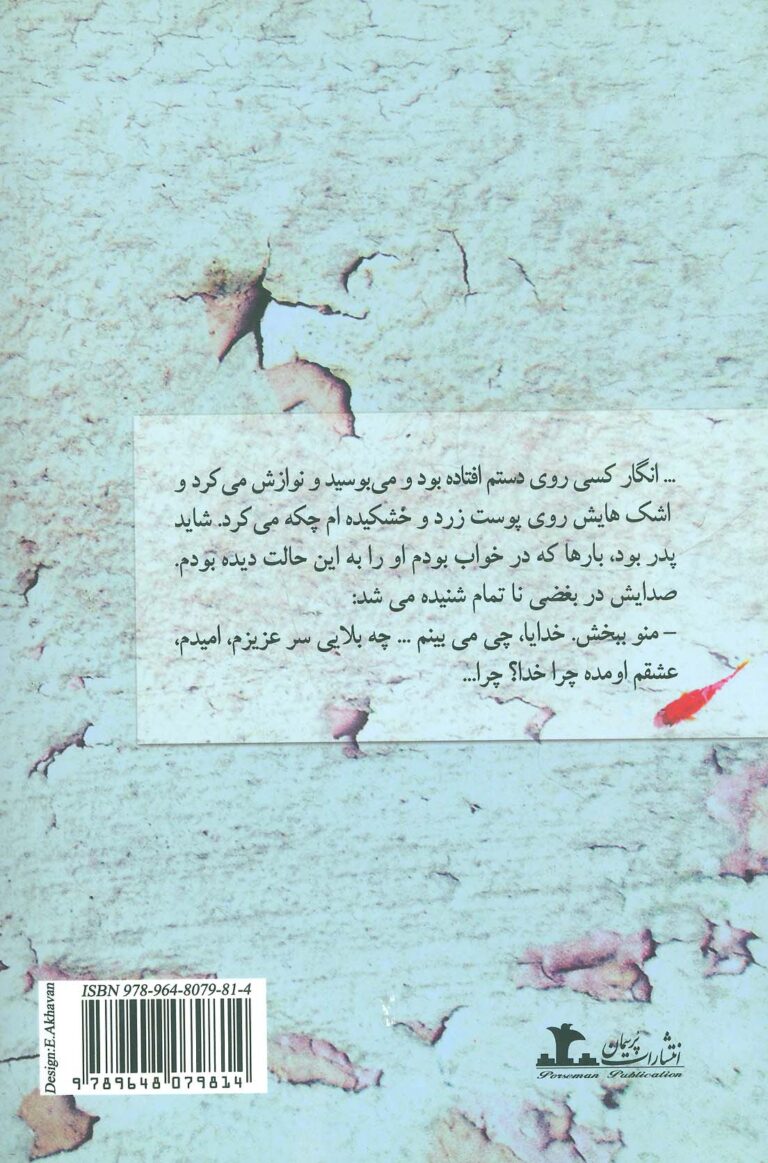 ... انگار کسی روی دستم افتاده بود و می‌بوسید و نوازش می‌کرد و
اشک هایش روی پوست زرد و خشکیده ام چکه می‌کرد. شاید
پدر بود، بارها که در خواب بودم او را به این حالت دیده بودم.
صدایش در بغضی نا تمام شنیده می شد:
– منو ببخش. خدایا، چی می بینم ... چه بلایی سر عزیزم، امیدم،
عشقم اومده چرا خدا؟ چرا...
ISBN 978-964-8079-81-4
9 789648 079814
Design:E.Akhavan
انتشارات پُرسِمان
Porseman Publication